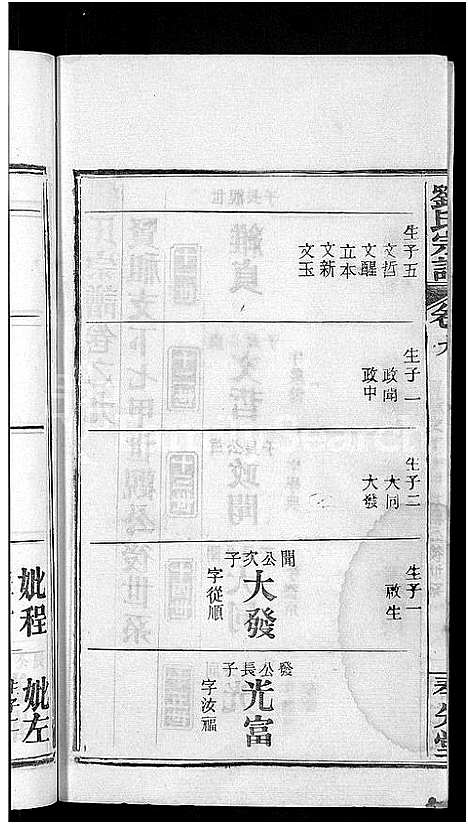 劉氏宗譜
卷
生子五
文哲
文醒
立本
文新
文玉
生子一
政聞
政中
生子二
大同
大發
生子一
啟生
聞公次子
大發
字從順
發公長子
光富
字汝福
妣程
妣左